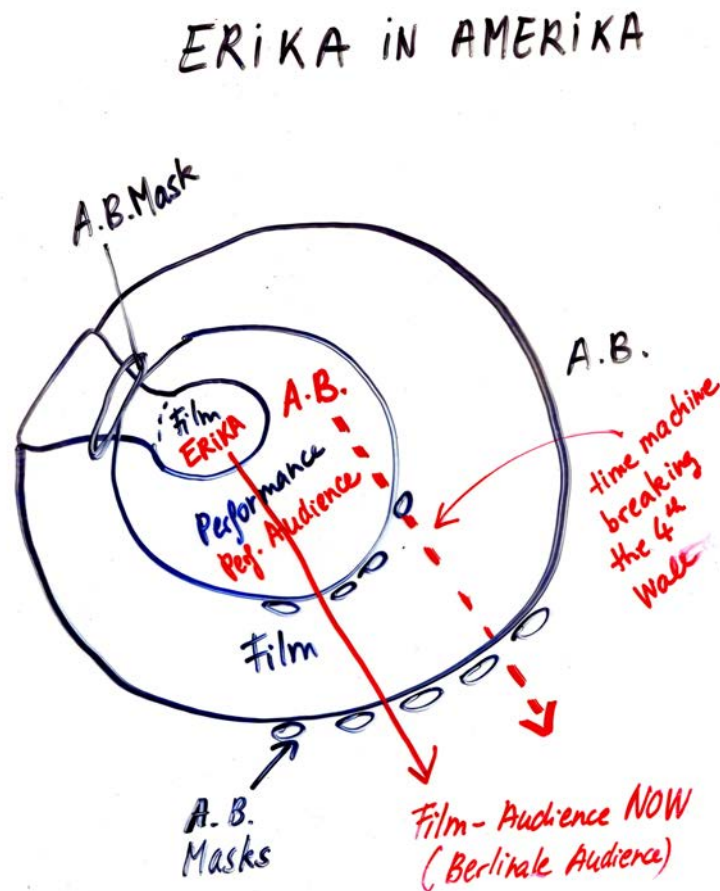 ERiKA iN AMERiKA
A.B. Mask
A.B.
Film
ERiKA
A.B.
Performance
Perf. Audience
time machine
breaking
the 4th
wall
Film
A.B.
Masks
Film - Audience NOW
(Berlinale Audience)